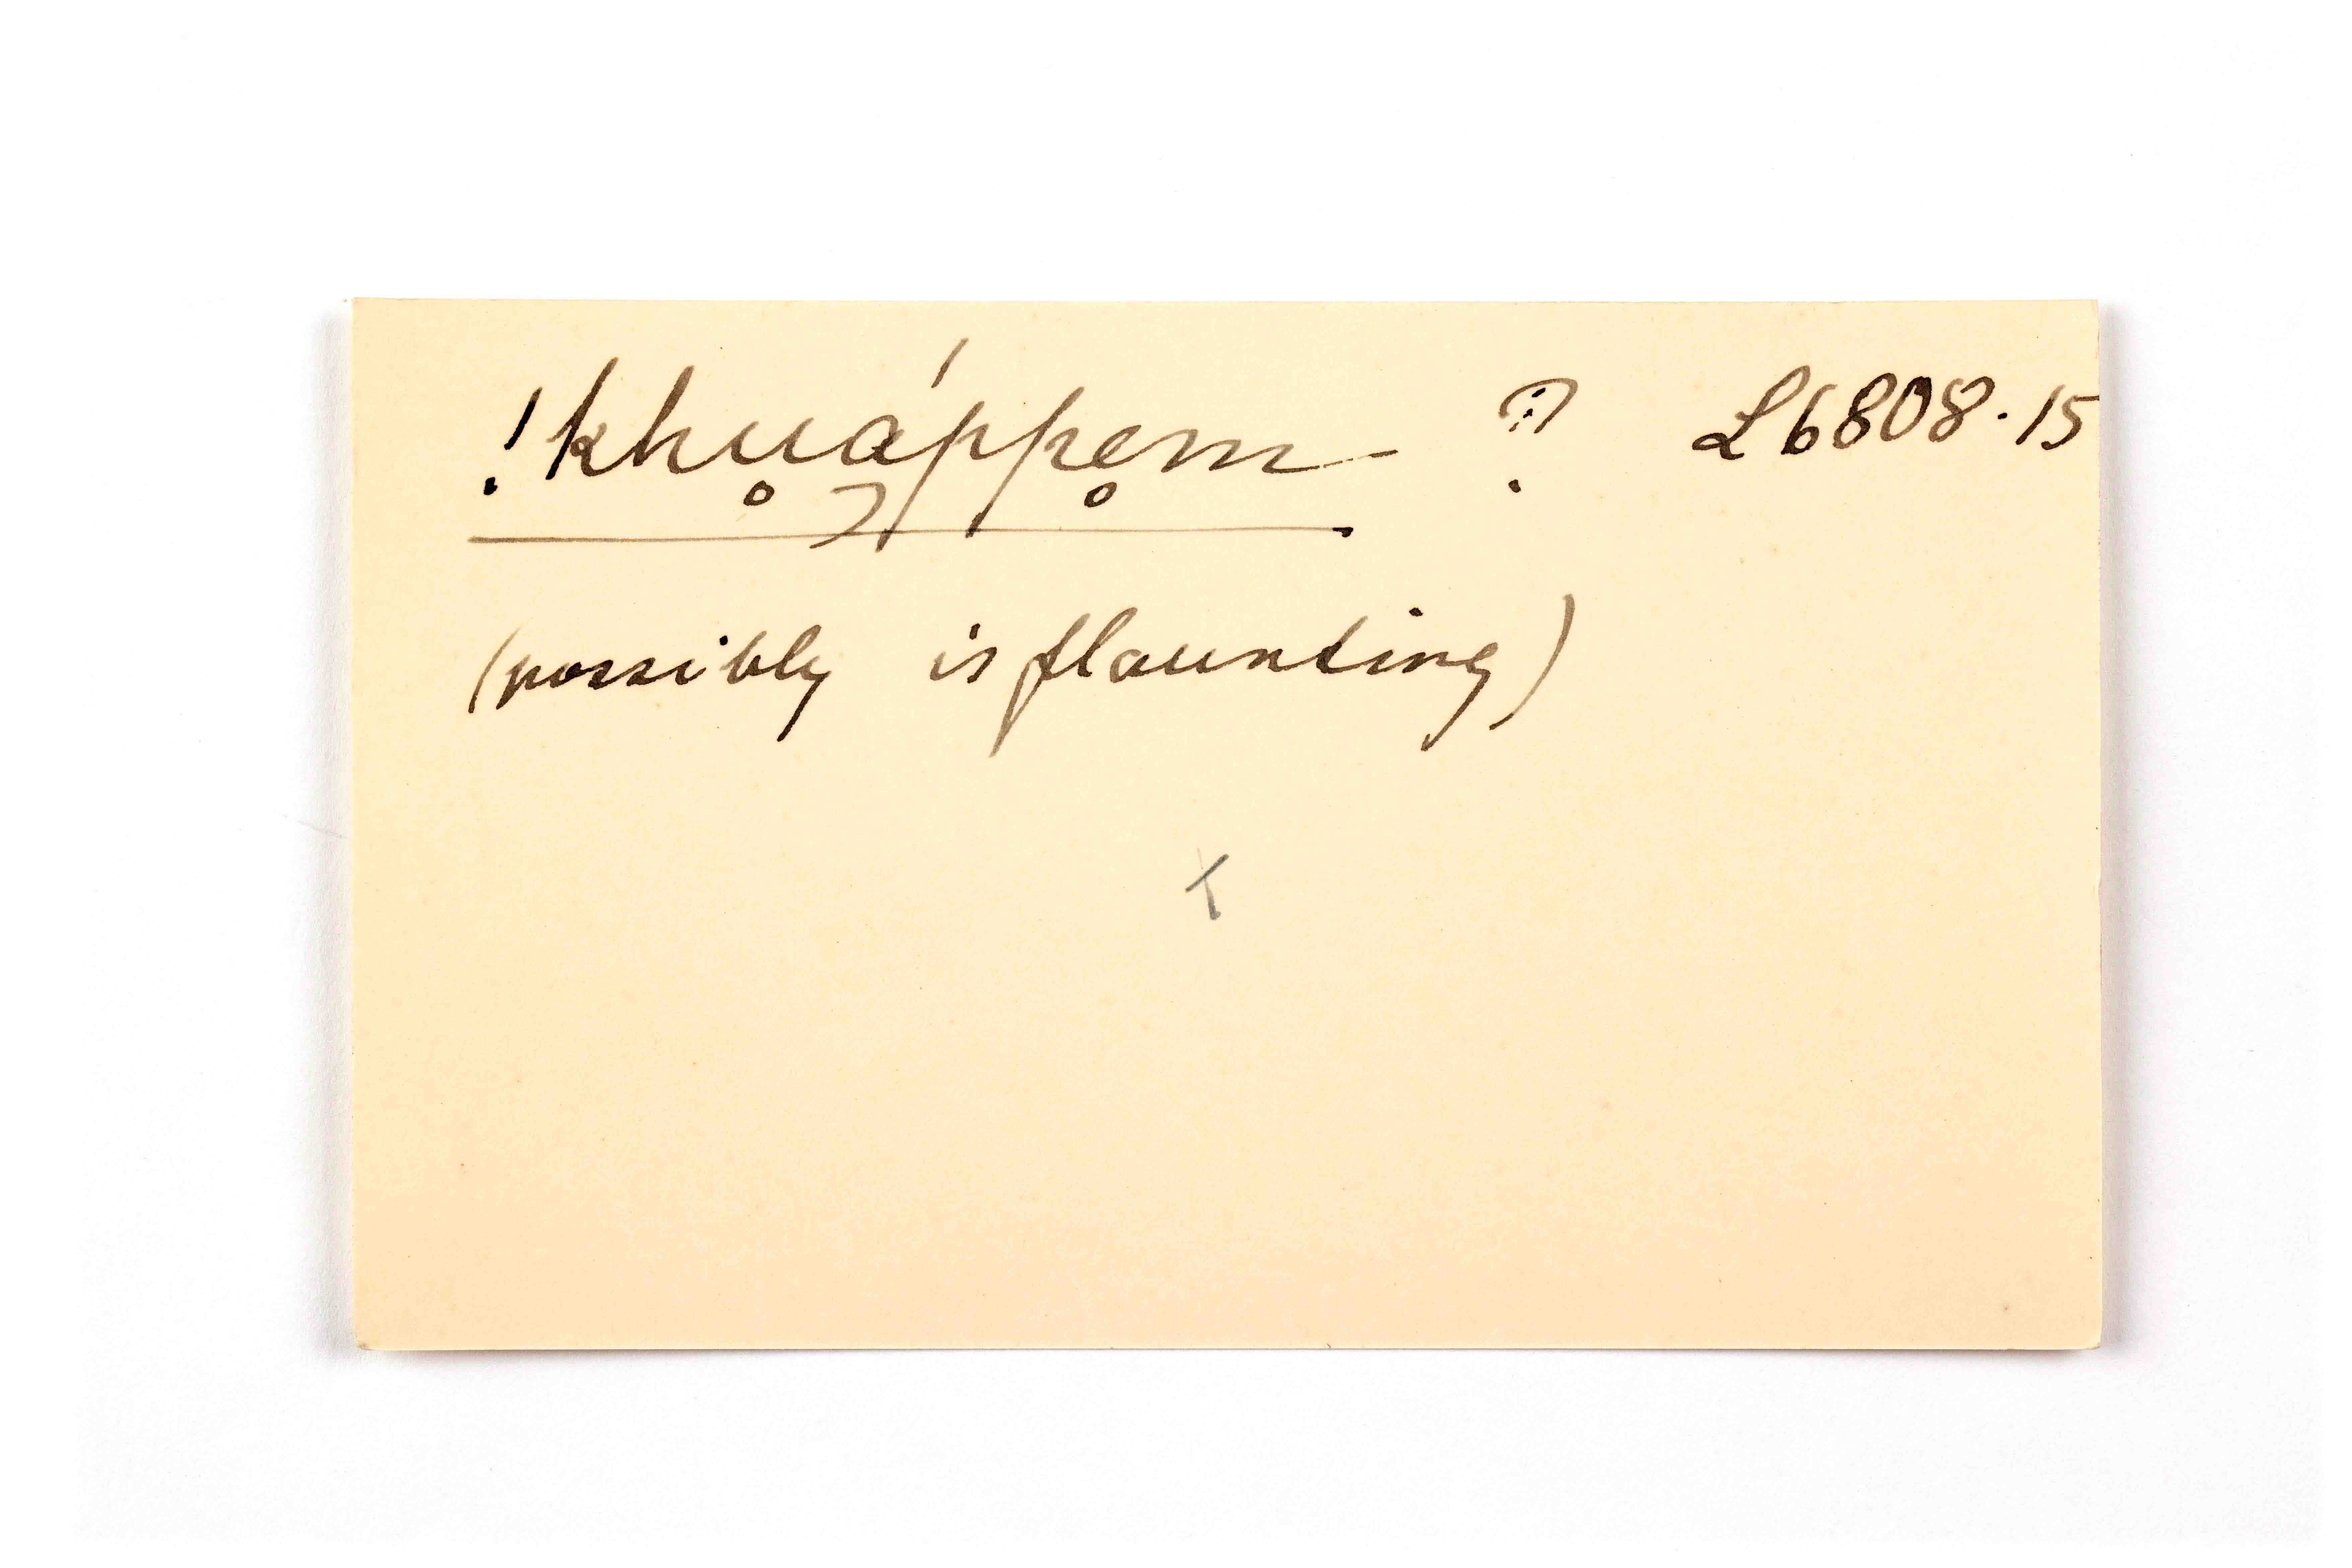 !khu̥á̡ppe̥m ? L6808.15
(possibly is flaunting)
x